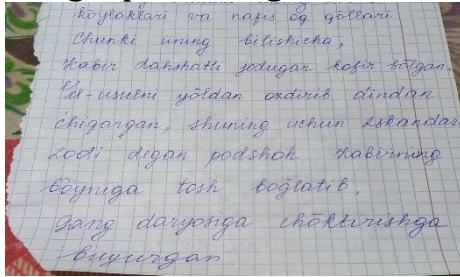 köylaklari va nafis og göllari
Chunki uning bilishicha,
Kabir dahshatli jodugar kofir bölgan.
El-ulusni yöldan ozdirib dindan
chigargan, shuning uchun Iskandar
Lodi degan podshoh Kabirning
böyniga tosh boglatib,
Gang daryosiga chöktirishga
buyurgan